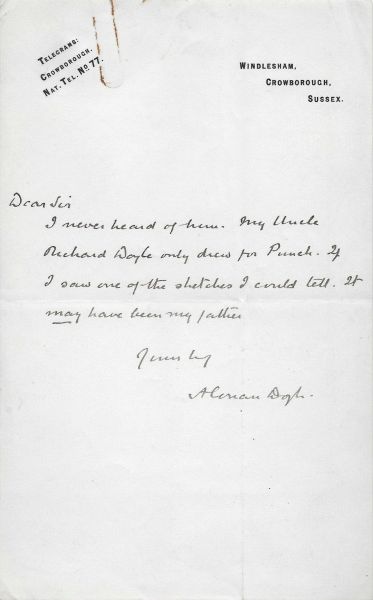 TELEGRAMS:
CROWBOROUGH.
NAT. TEL. NO 77.
WINDLESHAM,
CROWBOROUGH,
SUSSEX.
Dear Sir
I never heard of him. My Uncle
Richard Doyle only drew for Punch. If
I saw one of the sketches I could tell. It
may have been my father
Yours ly
A Conan Doyle.